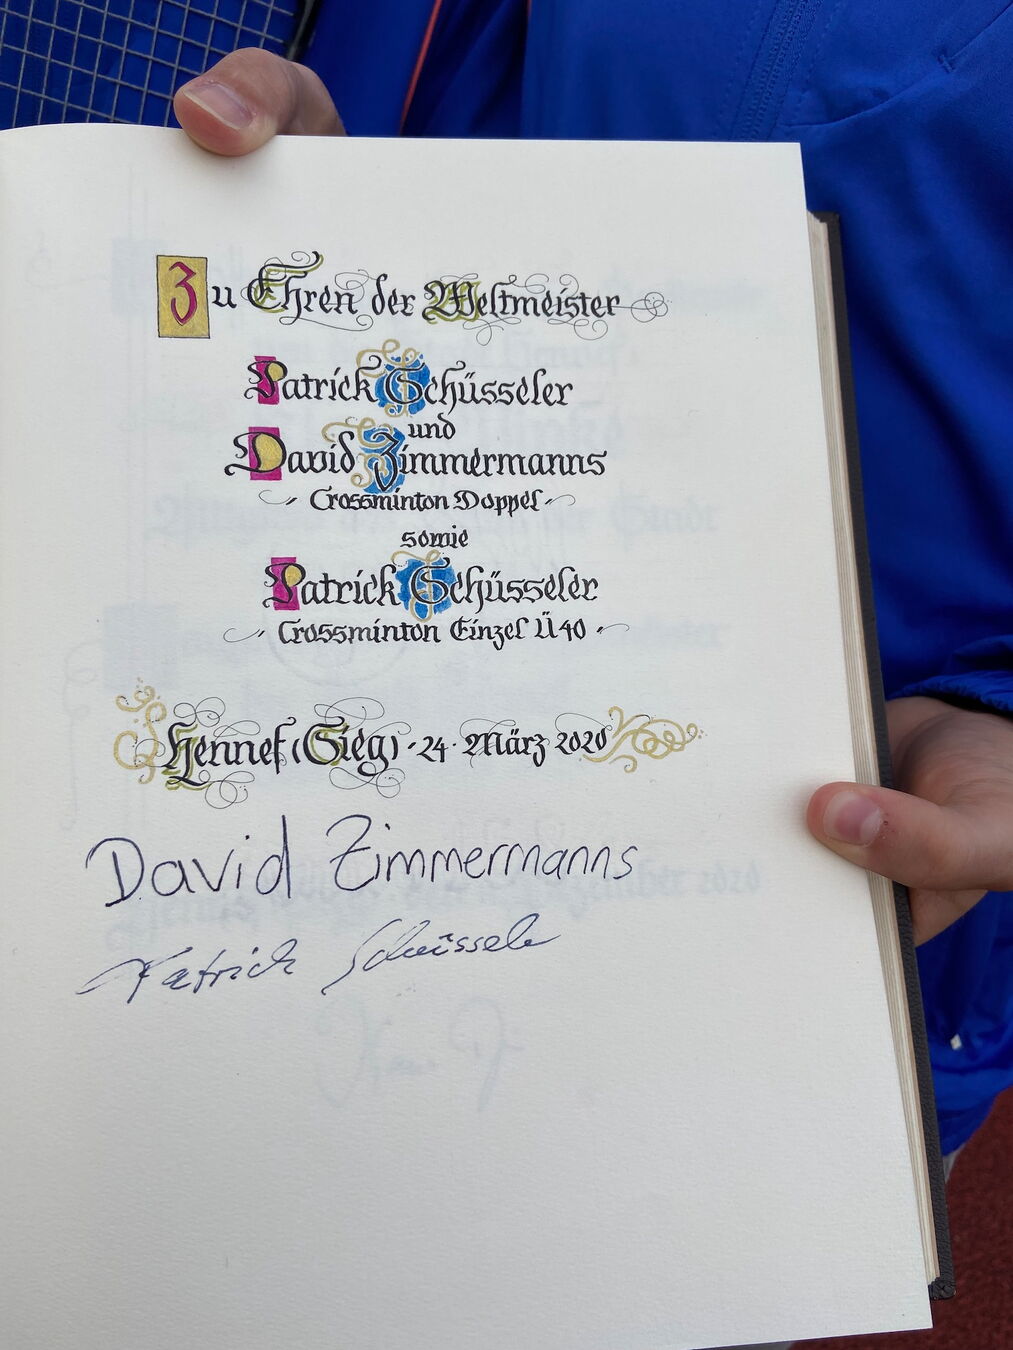 Zu Ehren der Weltmeister
Patrick Schüsseler
und
David Zimmermanns
Crossminton Doppel
sowie
Patrick Schüsseler
Crossminton Einzel Ü40
Hennef (Sieg) · 24 · März 2020
David Zimmermanns
Patrick Schüsseler